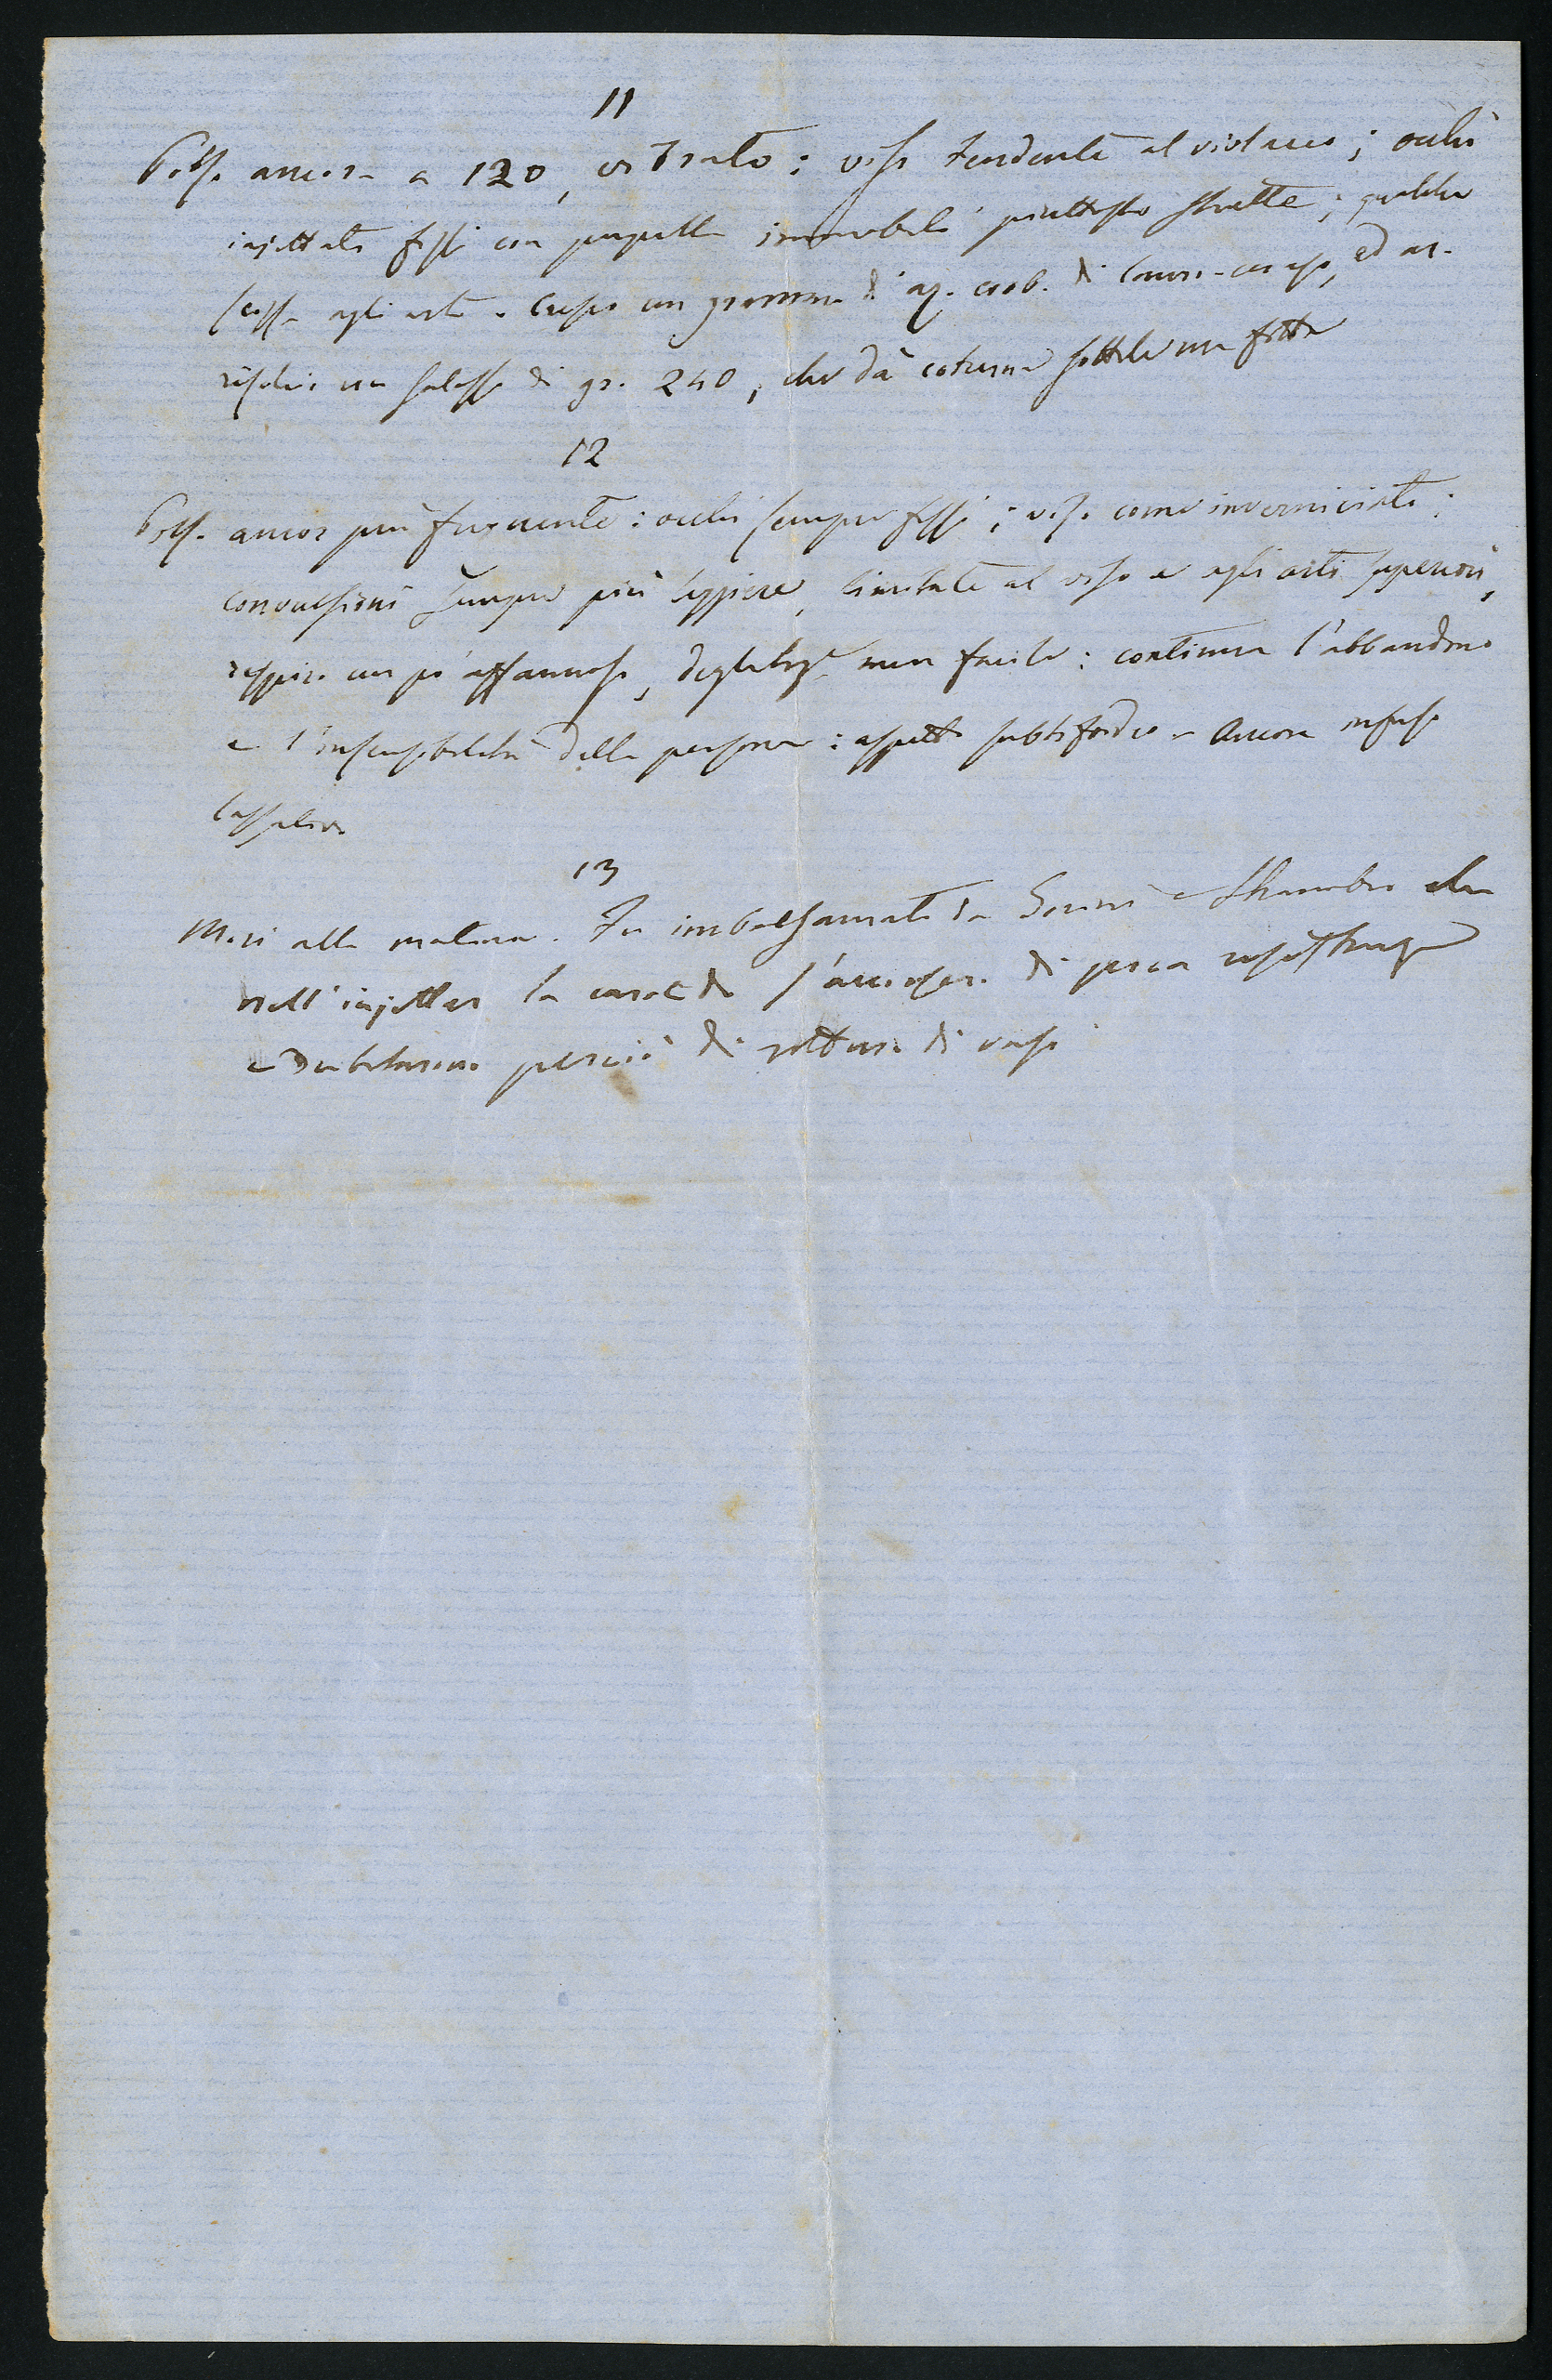 11
Polso ancora a 120, vibrato: viso tendente al violaceo; occhi
injettati fissi con pupille immobili piuttosto strette; qualche
scossa agli arti. un gramma di aq. coob. di lauro-ceraso, ed ar-
rischio un salasso di gr. 240, che dà cotenna sottile ma fitta
12
Polso ancor più frequente: occhi sempre fissi; viso come inverniciato:
convulsioni sempre più leggiere, limitate al viso e agli arti superiori,
respiro un po' affannoso, deglutiz.e men facile: continua l'abbandono
e l'insensibilità della persona: aspetto subtifoideo - Ancora infuso
lassativo.
13
Morì alla mattina. Fu imbalsamato da e che
nell'injettar la carotide s'accorsero di poca resistenza
e dubitarono perciò di rottura di vasi